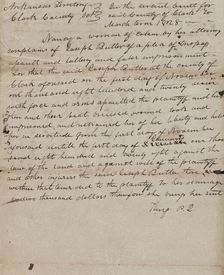 Arkansas Territory } In the circuit court for
Clark County Sct } said County of Clark to
March term 1828
Nancy a woman of color by her attorney
complains of Joseph Butler of a plea of trespass
assault and battery and false imprisonment
for that the said Joseph Butler at the county of
Clark aforesaid on the first day of November
one thousand eight hundred and twenty
with force and arms assaulted the plaintiff and
then and there beat bruised wounded and
imprisoned and restrained her of her liberty and held
her in servitude from the first day of November
aforesaid until the first day of
sand eight hundred and twenty eight against the
law of the land and against will of the plaintiff
and other injuries the said Joseph Butler
within that time did to the plaintiff to her damage
thousand dollars Therefore she brings her suit